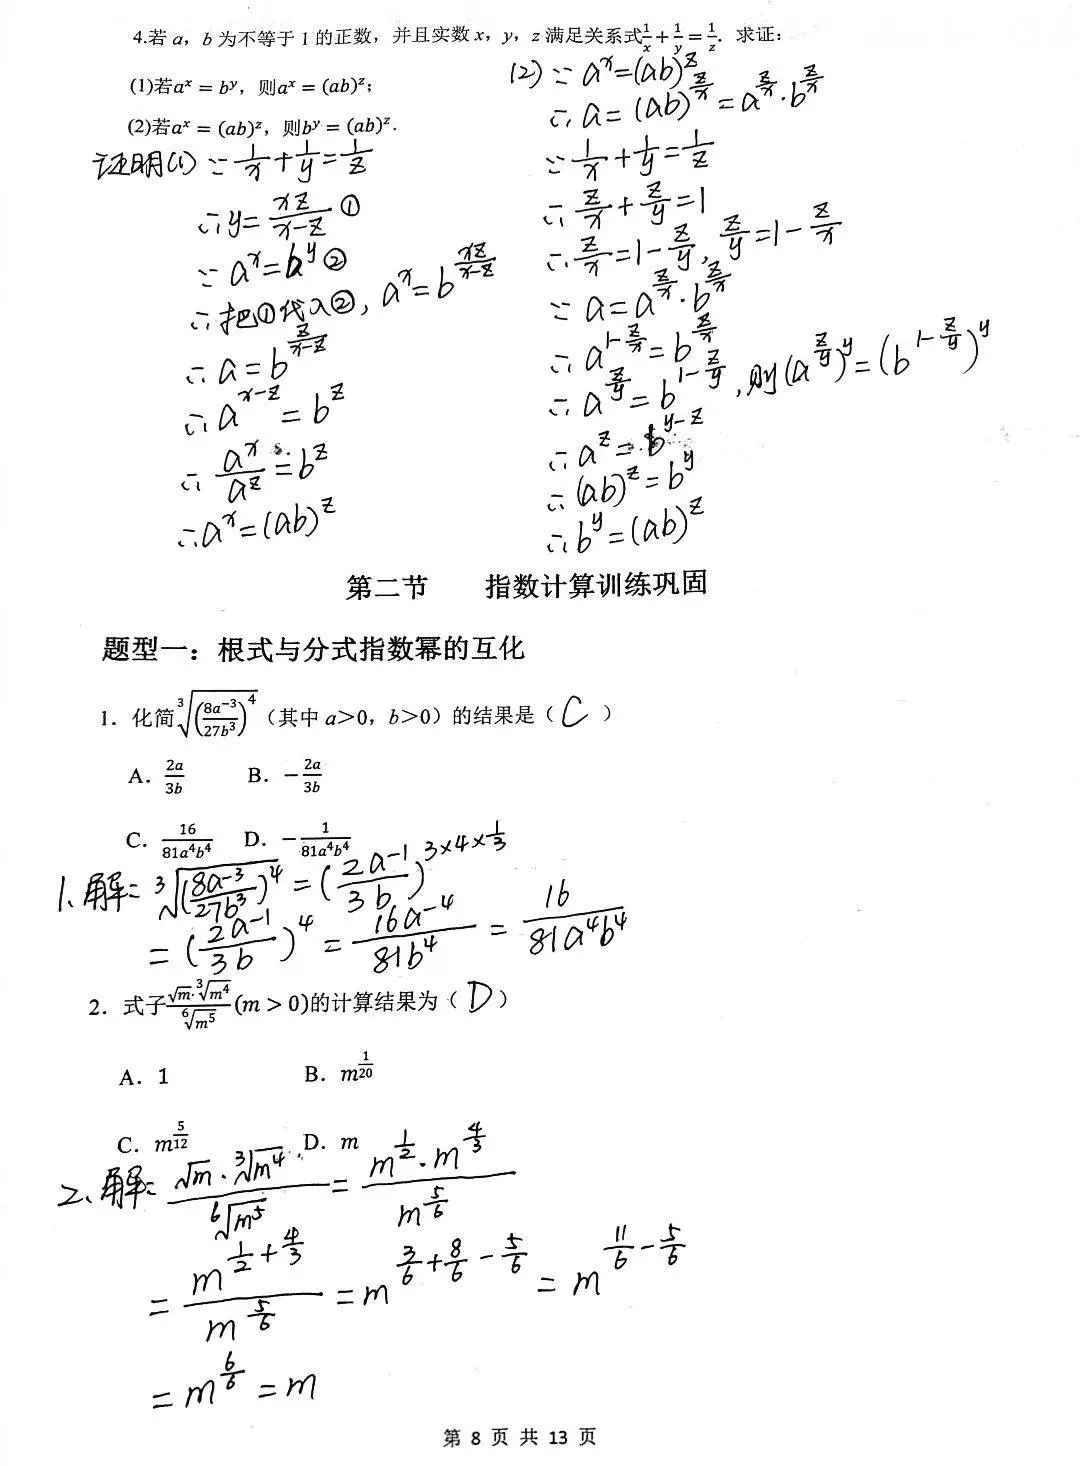 4.若 a，b 为不等于 1 的正数，并且实数 x，y，z 满足关系式 1/x + 1/y = 1/z. 求证：
(1)若a^x = b^y，则a^x = (ab)^z；
(2)若a^x = (ab)^z，则b^y = (ab)^z.
证明(1) ∵ 1/x + 1/y = 1/z
∴ y = xz/(x-z) ①
∵ a^x = b^y ②
∴ 把①代入②, a^x = b^(xz/(x-z))
∴ a = b^(z/(x-z))
∴ a^(x-z) = b^z
∴ a^x/a^z = b^z
∴ a^x = (ab)^z
(2) ∵ a^x = (ab)^z
∴ a = (ab)^(z/x) = a^(z/x) · b^(z/x)
∵ 1/x + 1/y = 1/z
∴ z/x + z/y = 1
∴ z/x = 1 - z/y, z/y = 1 - z/x
∵ a = a^(z/x) · b^(z/x)
∴ a^(1-z/x) = b^(z/x)
∴ a^(z/y) = b^(1-z/y), 则 (a^(z/y))^y = (b^(1-z/y))^y
∴ a^z = b^(y-z)
∴ (ab)^z = b^y
∴ b^y = (ab)^z
第二节 指数计算训练巩固
题型一：根式与分式指数幂的互化
1．化简 ∛((8a^-3/27b^3)^4)（其中 a>0，b>0）的结果是（ C ）
A．2a/3b B．-2a/3b
C．16/81a^4b^4 D．-1/81a^4b^4
1、解: ∛((8a^-3/27b^3)^4) = (2a^-1/3b)^(3×4×1/3)
= (2a^-1/3b)^4 = 16a^-4/81b^4 = 16/81a^4b^4
2．式子 √m·∛(m^4)/⁶√(m^5) (m > 0)的计算结果为（ D ）
A．1 B．m^(1/20)
C．m^(5/12) D．m
2、解: √m·∛(m^4)/⁶√(m^5) = m^(1/2)·m^(4/3)/m^(5/6)
= m^(1/2+4/3)/m^(5/6) = m^(3/6+8/6-5/6) = m^(11/6-5/6)
= m^(6/6) = m
第 8 页 共 13 页